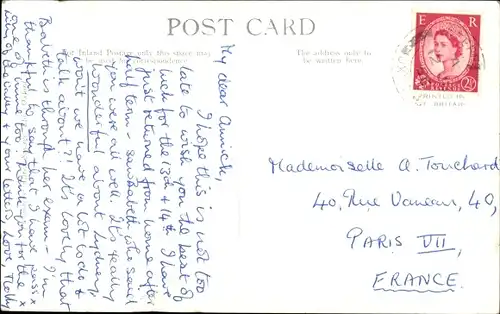 POST CARD
For Inland Postage only this space may
be used for correspondence
The address only to
be written here.
E R
POSTAGE REVENUE
2½D
PRINTED IN
BRITAIN
My dear Annick,
I hope this is not too
late to wish you the best of
luck for the 13th & 14th. I have
just returned from home after
half term - saw Babeth who said
you were all well. It's really
wonderful about Sydney,
won't we have a lot to do &
talk about?! It's lovely that
Babeth is through her exam - I'm
thankful to say that I have pass
one of mine too. Thank-you for the
of the & your letter, Love
Mademoiselle A. Touchard
40, Rue Vaneau, 40,
PARIS VII,
FRANCE.